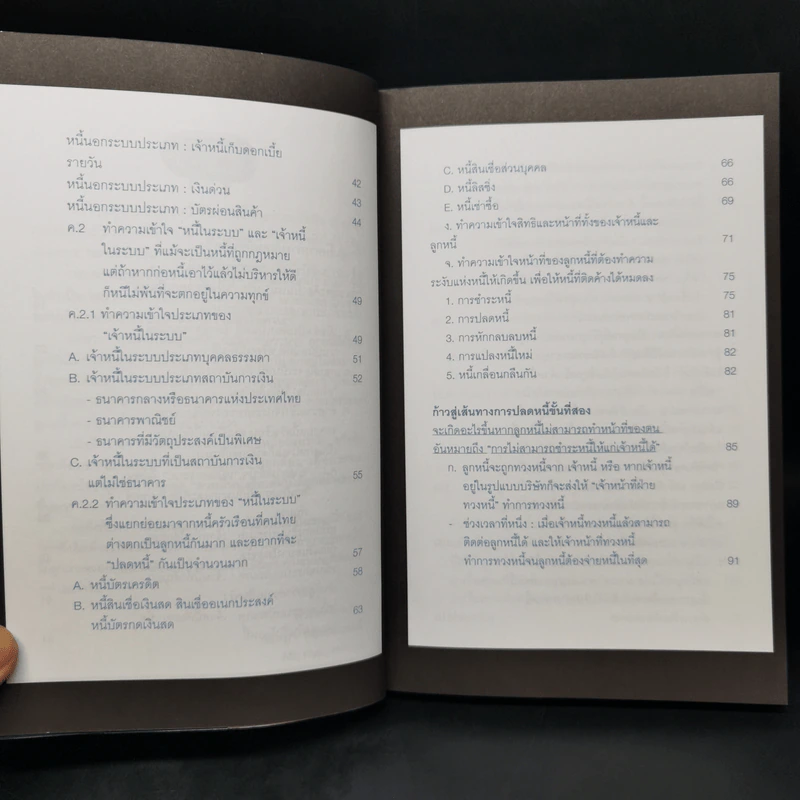 หนี้นอกระบบประเภท : เจ้าหนี้เก็บดอกเบี้ย
รายวัน 42
หนี้นอกระบบประเภท : เงินด่วน 43
หนี้นอกระบบประเภท : บัตรผ่อนสินค้า 44
ค.2 ทำความเข้าใจ “หนี้ในระบบ” และ “เจ้าหนี้
ในระบบ” ที่แม้จะเป็นหนี้ที่ถูกกฎหมาย
แต่ถ้าหากก่อหนี้เอาไว้แล้วไม่บริหารให้ดี
ก็หนีไม่พ้นที่จะตกอยู่ในความทุกข์ 49
ค.2.1 ทำความเข้าใจประเภทของ
“เจ้าหนี้ในระบบ” 49
A. เจ้าหนี้ในระบบประเภทบุคคลธรรมดา 51
B. เจ้าหนี้ในระบบประเภทสถาบันการเงิน 52
- ธนาคารกลางหรือธนาคารแห่งประเทศไทย
- ธนาคารพาณิชย์
- ธนาคารที่มีวัตถุประสงค์เป็นพิเศษ
C. เจ้าหนี้ในระบบที่เป็นสถาบันการเงิน
แต่ไม่ใช่ธนาคาร 55
ค.2.2 ทำความเข้าใจประเภทของ “หนี้ในระบบ”
ซึ่งแยกย่อยมาจากหนี้ครัวเรือนที่คนไทย
ต่างตกเป็นลูกหนี้กันมาก และอยากที่จะ
“ปลดหนี้” กันเป็นจำนวนมาก 57
A. หนี้บัตรเครดิต 58
B. หนี้สินเชื่อเงินสด สินเชื่ออเนกประสงค์
หนี้บัตรกดเงินสด 63
C. หนี้สินเชื่อส่วนบุคคล 66
D. หนี้ลิสซิ่ง 66
E. หนี้เช่าซื้อ 69
ง. ทำความเข้าใจสิทธิและหน้าที่ทั้งของเจ้าหนี้และ
ลูกหนี้ 71
จ. ทำความเข้าใจหน้าที่ของลูกหนี้ที่ต้องทำความ
ระงับแห่งหนี้ให้เกิดขึ้น เพื่อให้หนี้ที่ติดค้างได้หมดลง 75
1. การชำระหนี้ 75
2. การปลดหนี้ 81
3. การหักกลบลบหนี้ 81
4. การแปลงหนี้ใหม่ 82
5. หนี้เกลื่อนกลืนกัน 82
ก้าวสู่เส้นทางการปลดหนี้ขั้นที่สอง
จะเกิดอะไรขึ้นหากลูกหนี้ไม่สามารถทำหน้าที่ของตน
อันหมายถึง “การไม่สามารถชำระหนี้ให้แก่เจ้าหนี้ได้” 85
ก. ลูกหนี้จะถูกทวงหนี้จาก เจ้าหนี้ หรือ หากเจ้าหนี้
อยู่ในรูปแบบบริษัทก็จะส่งให้ “เจ้าหน้าที่ฝ่าย
ทวงหนี้” ทำการทวงหนี้ 89
- ช่วงเวลาที่หนึ่ง : เมื่อเจ้าหนี้ทวงหนี้แล้วสามารถ
ติดต่อลูกหนี้ได้ และให้เจ้าหน้าที่ทวงหนี้
ทำการทวงหนี้จนลูกหนี้ต้องจ่ายหนี้ในที่สุด 91